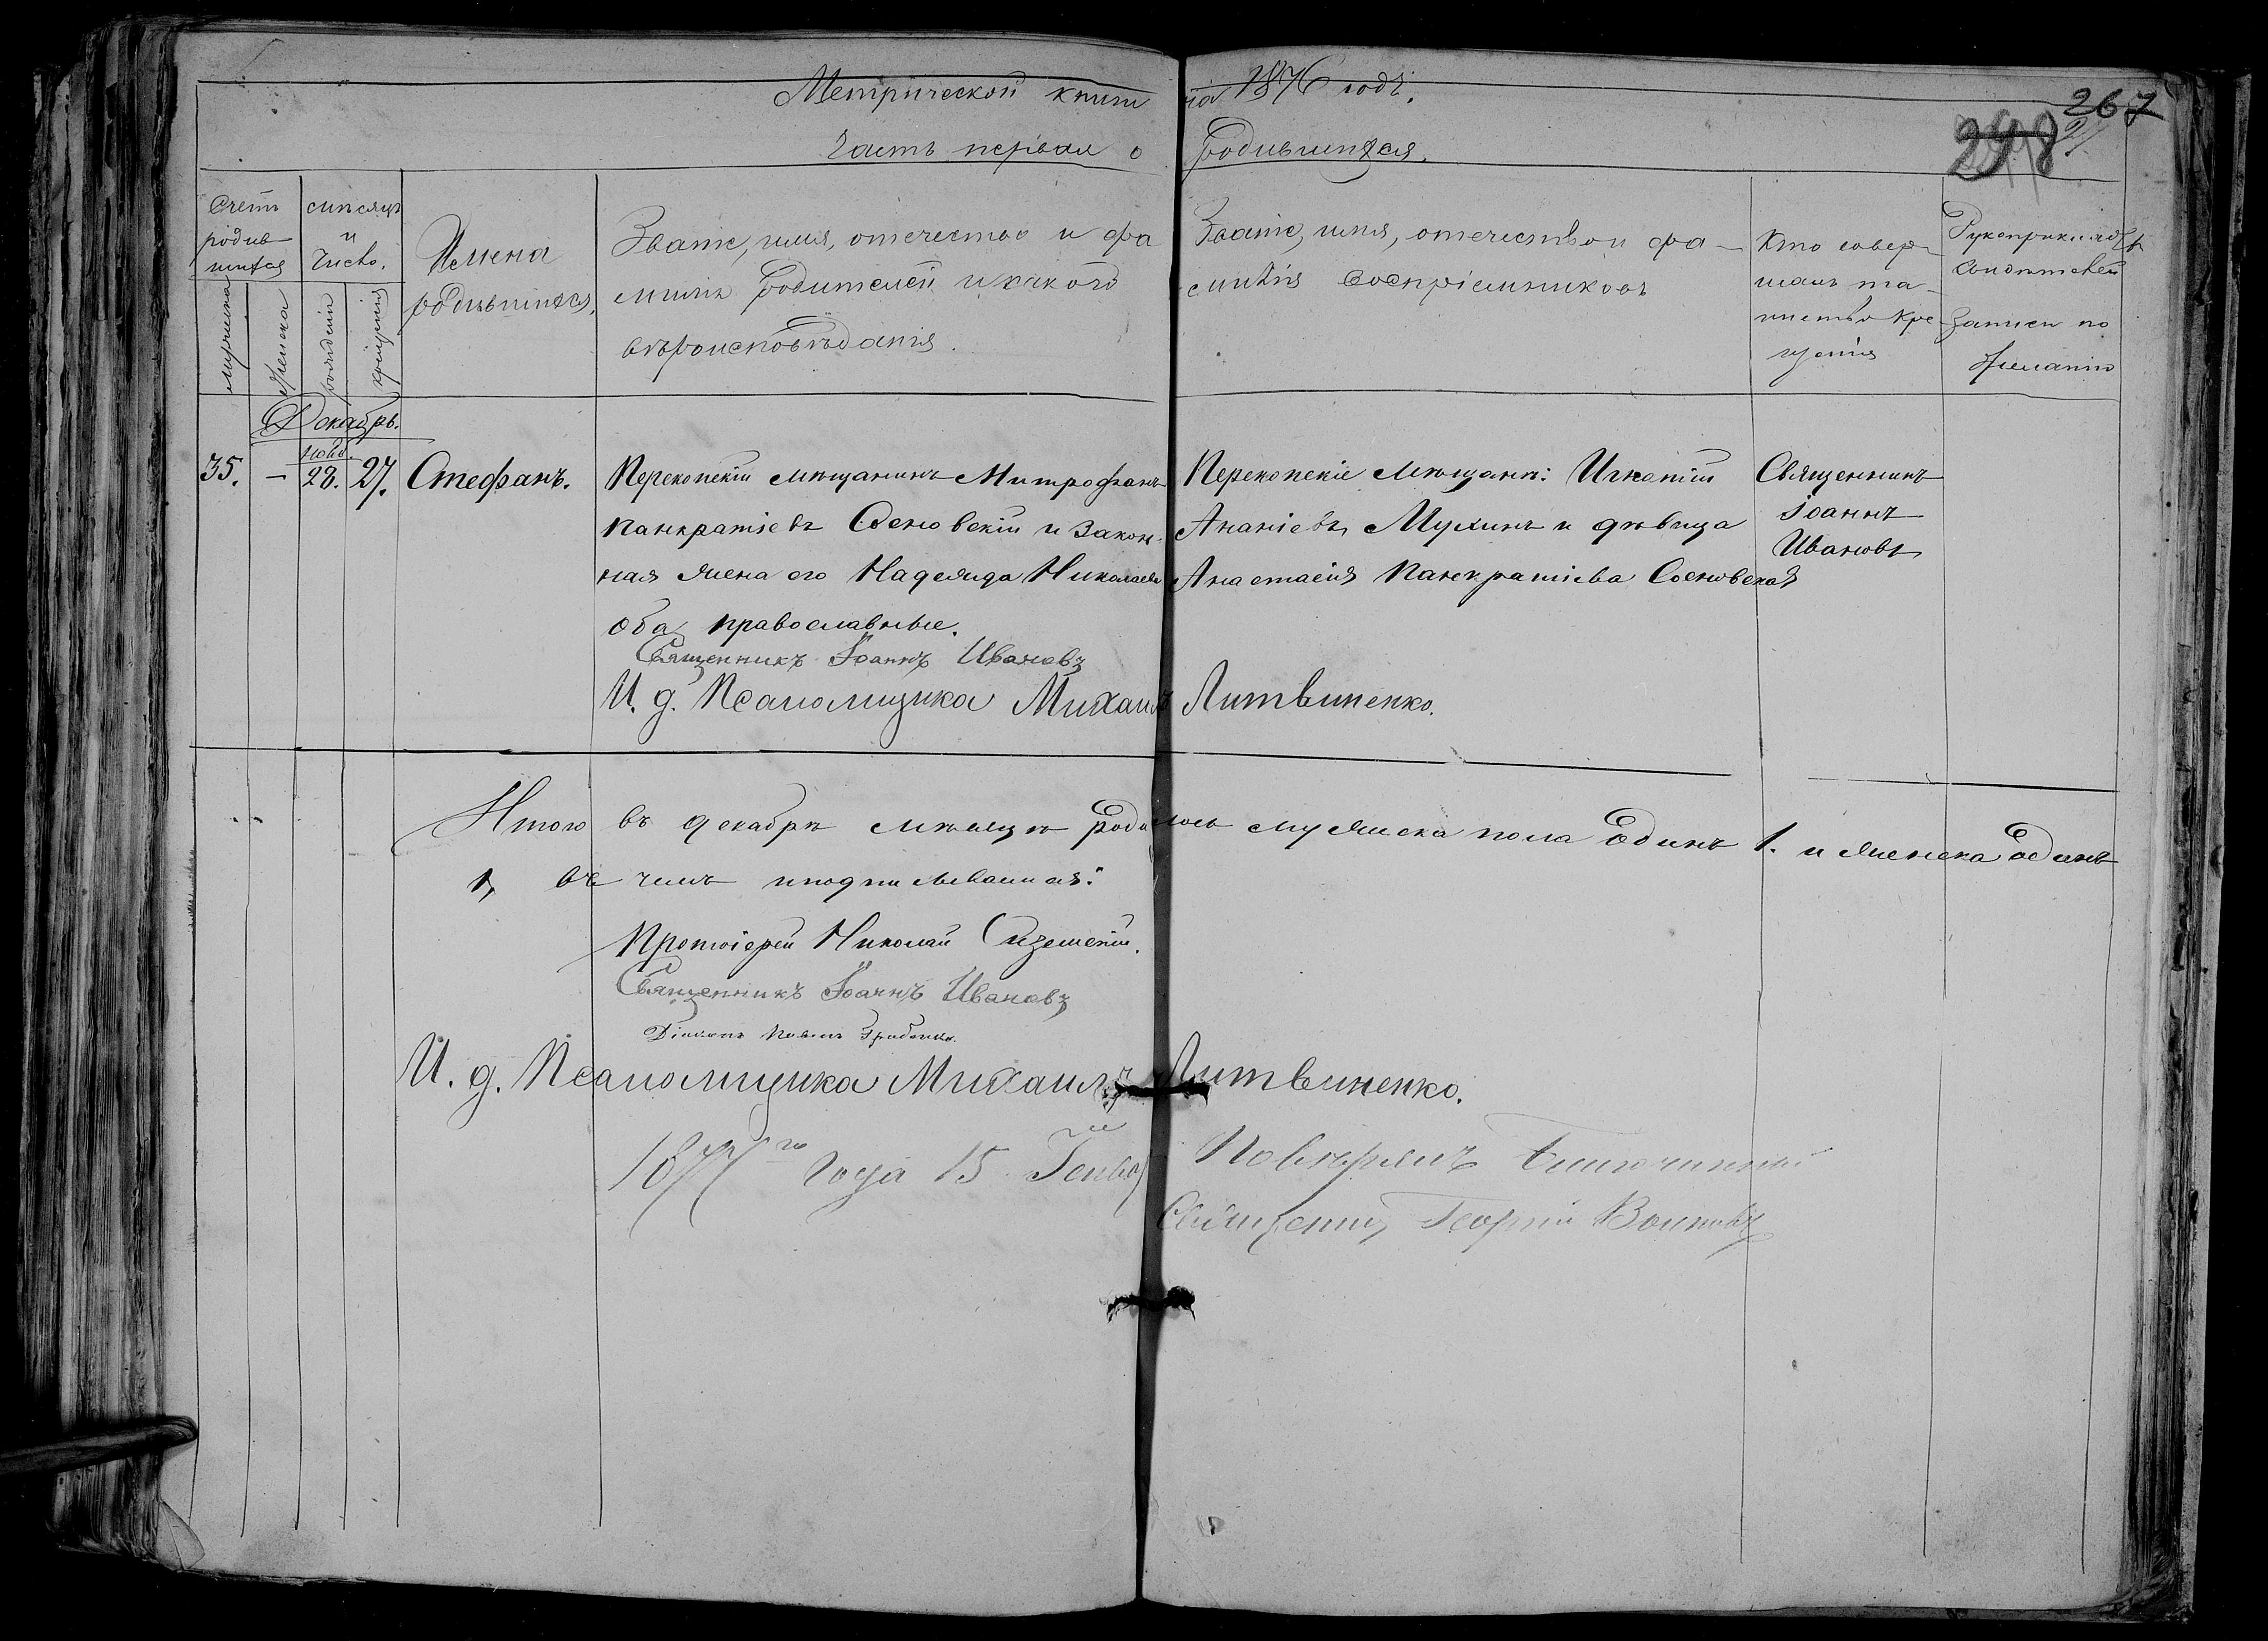 Метрической книги на 1876 годъ.
267
298
Часть первая о родившихся.
Счетъ родив-шихся
мѣсяцъ и число.
Имена родившихся.
Званіе, имя, отечество и фа
миліи родителей и какого
вѣроисповѣданія.
Званіе, имя, отечество и фа-
милія воспріемниковъ
Кто совер-
шалъ та-
инство кре-
щенія
Рукоприкладст
свидѣтелей
записи по
желанію
мужеска
женска
рожденія
крещенія
Декабрь.
35. – нояб. 28. 27. Стефанъ.
Перекопскій мѣщанинъ Митрофанъ
Панкратіевъ Сосновскій и закон-
ная жена его Надежда Николаева
оба православные.
Перекопскіе мѣщане: Игнатій
Ананіевъ Мухинъ и дѣвица
Анастасія Панкратіева Сосновская
Священникъ
Іоаннъ
Ивановъ
Священникъ Іоаннъ Ивановъ
И. д. Псаломщика Михаилъ Литвиненко.
Итого въ декабрѣ мѣсяцѣ родилось мужеска пола Одинъ 1. и женска Одинъ
1, въ чемъ и подписываемся:
Протоіерей Николай
Священникъ Іоаннъ Ивановъ
Діаконъ Павелъ
И. д. Псаломщика Михаилъ Литвиненко.
1877 го года 15 Генв. Повѣрялъ Благочинный
Священ. Георгій